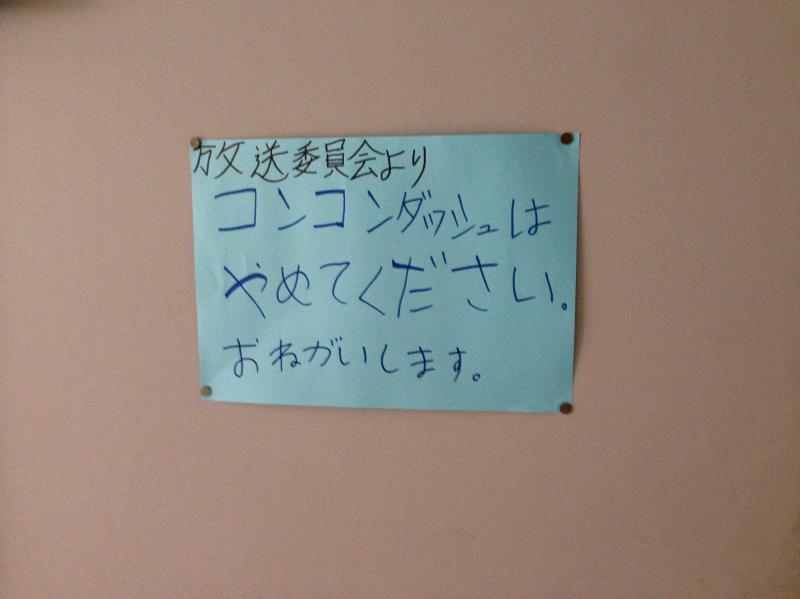 放送委員会より
コンコンダッシュは
やめてください。
おねがいします。